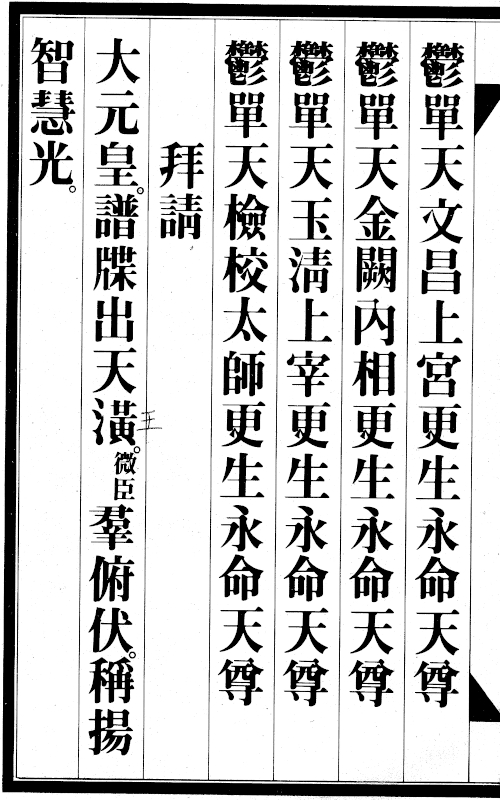 鬱單天文昌上宮更生永命天尊
鬱單天金闕內相更生永命天尊
鬱單天玉淸上宰更生永命天尊
鬱單天檢校太師更生永命天尊
拜請
大元皇。譜牒出天潢。微臣羣俯伏。稱揚
王
智慧光。